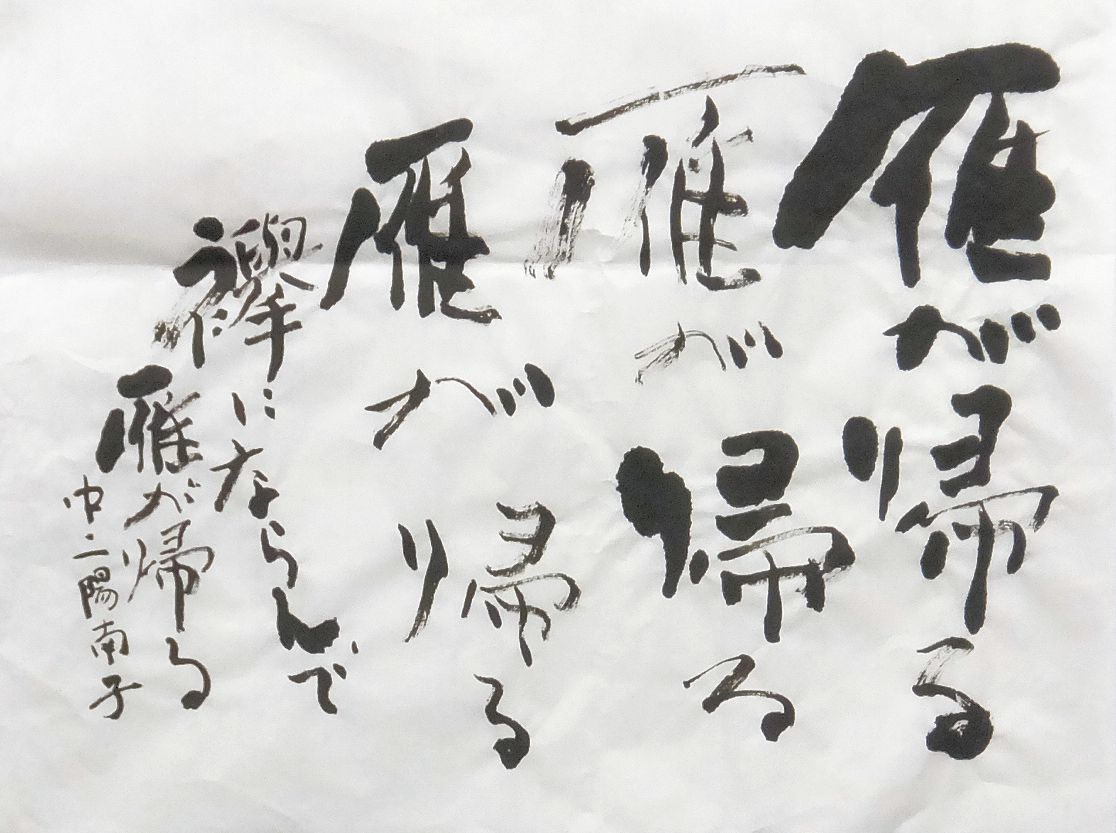 雁が帰る
雁が帰る
雁が帰る
襷にならんで
雁が帰る
中二陽南子